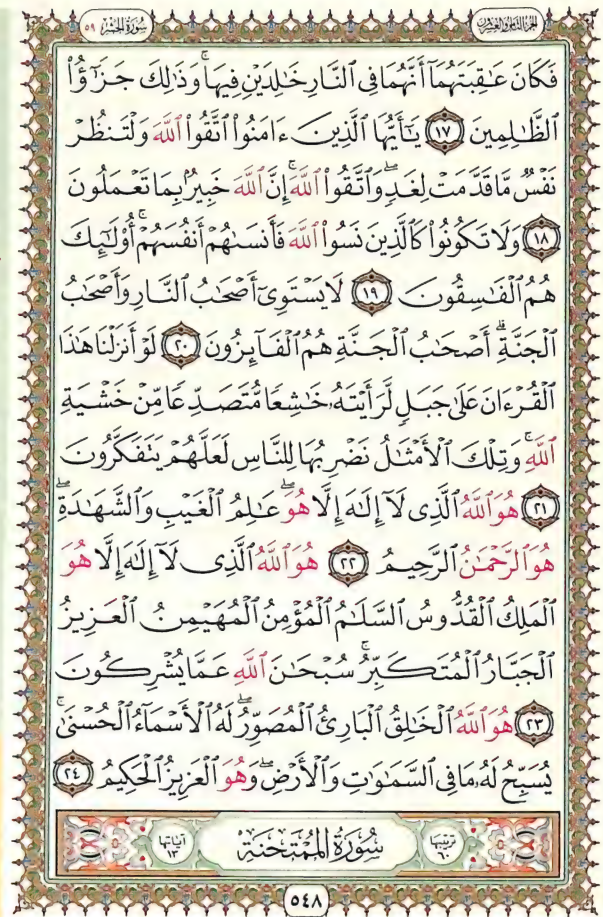 الجزء الثامن والعشرون
سورة الحشر ٥٩
فَكَانَ عَٰقِبَتَهُمَآ أَنَّهُمَا فِي ٱلنَّارِ خَٰلِدَيْنِ فِيهَاۚ وَذَٰلِكَ جَزَٰٓؤُاْ
ٱلظَّٰلِمِينَ ١٧ يَٰٓأَيُّهَا ٱلَّذِينَ ءَامَنُواْ ٱتَّقُواْ ٱللَّهَ وَلْتَنظُرْ
نَفْسٌ مَّا قَدَّمَتْ لِغَدٍۖ وَٱتَّقُواْ ٱللَّهَۚ إِنَّ ٱللَّهَ خَبِيرُۢ بِمَا تَعْمَلُونَ
١٨ وَلَا تَكُونُواْ كَٱلَّذِينَ نَسُواْ ٱللَّهَ فَأَنسَىٰهُمْ أَنفُسَهُمْۚ أُوْلَٰٓئِكَ
هُمُ ٱلْفَٰسِقُونَ ١٩ لَا يَسْتَوِيٓ أَصْحَٰبُ ٱلنَّارِ وَأَصْحَٰبُ
ٱلْجَنَّةِۚ أَصْحَٰبُ ٱلْجَنَّةِ هُمُ ٱلْفَآئِزُونَ ٢٠ لَوْ أَنزَلْنَا هَٰذَا
ٱلْقُرْءَانَ عَلَىٰ جَبَلٍ لَّرَأَيْتَهُۥ خَٰشِعًا مُّتَصَدِّعًا مِّنْ خَشْيَةِ
ٱللَّهِۚ وَتِلْكَ ٱلْأَمْثَٰلُ نَضْرِبُهَا لِلنَّاسِ لَعَلَّهُمْ يَتَفَكَّرُونَ
٢١ هُوَ ٱللَّهُ ٱلَّذِي لَآ إِلَٰهَ إِلَّا هُوَۖ عَٰلِمُ ٱلْغَيْبِ وَٱلشَّهَٰدَةِۖ
هُوَ ٱلرَّحْمَٰنُ ٱلرَّحِيمُ ٢٢ هُوَ ٱللَّهُ ٱلَّذِي لَآ إِلَٰهَ إِلَّا هُوَ
ٱلْمَلِكُ ٱلْقُدُّوسُ ٱلسَّلَٰمُ ٱلْمُؤْمِنُ ٱلْمُهَيْمِنُ ٱلْعَزِيزُ
ٱلْجَبَّارُ ٱلْمُتَكَبِّرُۚ سُبْحَٰنَ ٱللَّهِ عَمَّا يُشْرِكُونَ
٢٣ هُوَ ٱللَّهُ ٱلْخَٰلِقُ ٱلْبَارِئُ ٱلْمُصَوِّرُۖ لَهُ ٱلْأَسْمَآءُ ٱلْحُسْنَىٰۚ
يُسَبِّحُ لَهُۥ مَا فِي ٱلسَّمَٰوَٰتِ وَٱلْأَرْضِۖ وَهُوَ ٱلْعَزِيزُ ٱلْحَكِيمُ ٢٤
ترتيبها ٦٠
سُورَةُ المُمْتَحَنَة
آياتها ١٣
٥٤٨